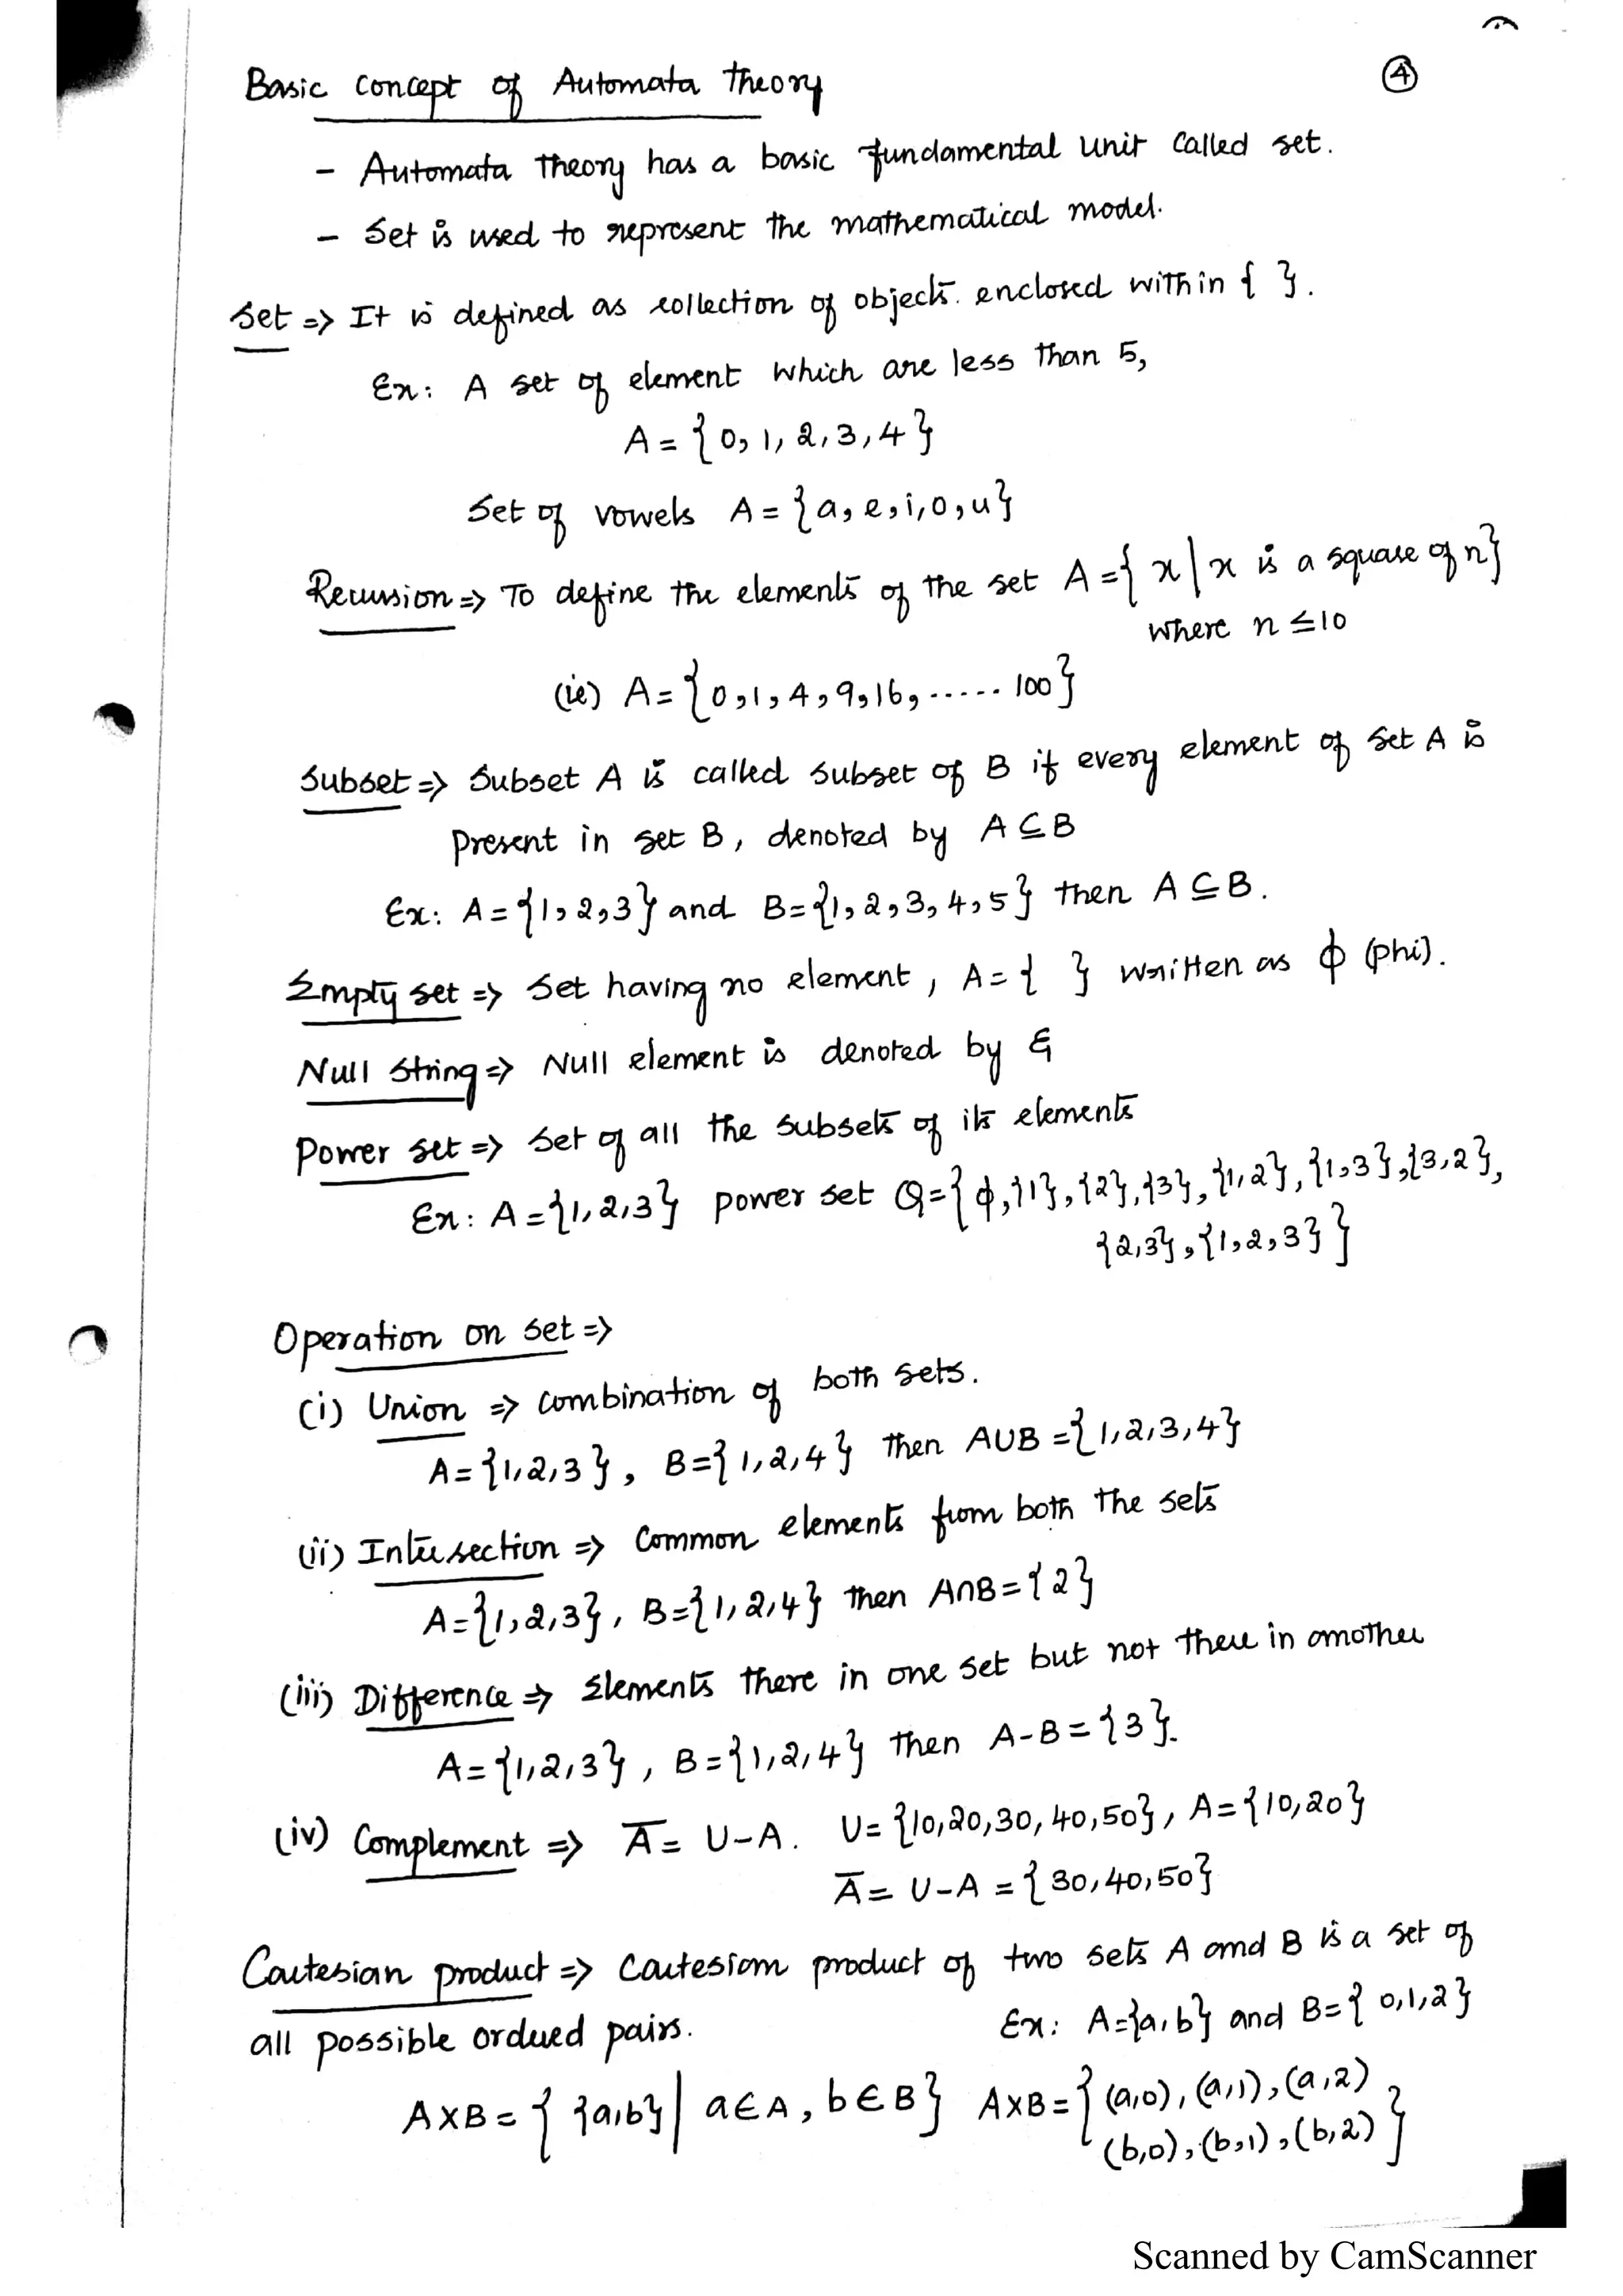 4
Basic concept of Automata theory
- Automata theory has a basic fundamental unit called set.
- Set is used to represent the mathematical model.
Set => It is defined as collection of objects. enclosed within { }.
Ex: A set of element which are less than 5,
A = {0, 1, 2, 3, 4}
Set of vowels A = {a, e, i, o, u}
Recursion => To define the elements of the set A = {x | x is a square of n}
where n ≤ 10
(ie) A = {0, 1, 4, 9, 16, ..... 100}
Subset => Subset A is called subset of B if every element of set A is
present in set B, denoted by A ⊆ B
Ex: A = {1, 2, 3} and B = {1, 2, 3, 4, 5} then A ⊆ B.
Empty set => Set having no element, A = { } written as ϕ (phi).
Null string => Null element is denoted by ε
Power set => Set of all the subsets of its elements
Ex: A = {1, 2, 3} power set Q = {ϕ, {1}, {2}, {3}, {1, 2}, {1, 3}, {3, 2},
{2, 3}, {1, 2, 3}}
Operation on set =>
(i) Union => combination of both sets.
A = {1, 2, 3}, B = {1, 2, 4} then A∪B = {1, 2, 3, 4}
(ii) Intersection => Common elements from both the sets
A = {1, 2, 3}, B = {1, 2, 4} then A∩B = {2}
(iii) Difference => Elements there in one set but not there in another
A = {1, 2, 3}, B = {1, 2, 4} then A-B = {3}.
(iv) Complement => A̅ = U-A. U = {10, 20, 30, 40, 50}, A = {10, 20}
A̅ = U-A = {30, 40, 50}
Cartesian product => Cartesian product of two sets A and B is a set of
all possible ordered pairs. Ex: A = {a, b} and B = {0, 1, 2}
A×B = { {a, b} | a∈A, b∈B} A×B = { (a,0), (a,1), (a,2)
(b,0), (b,1), (b,2) }
Scanned by CamScanner